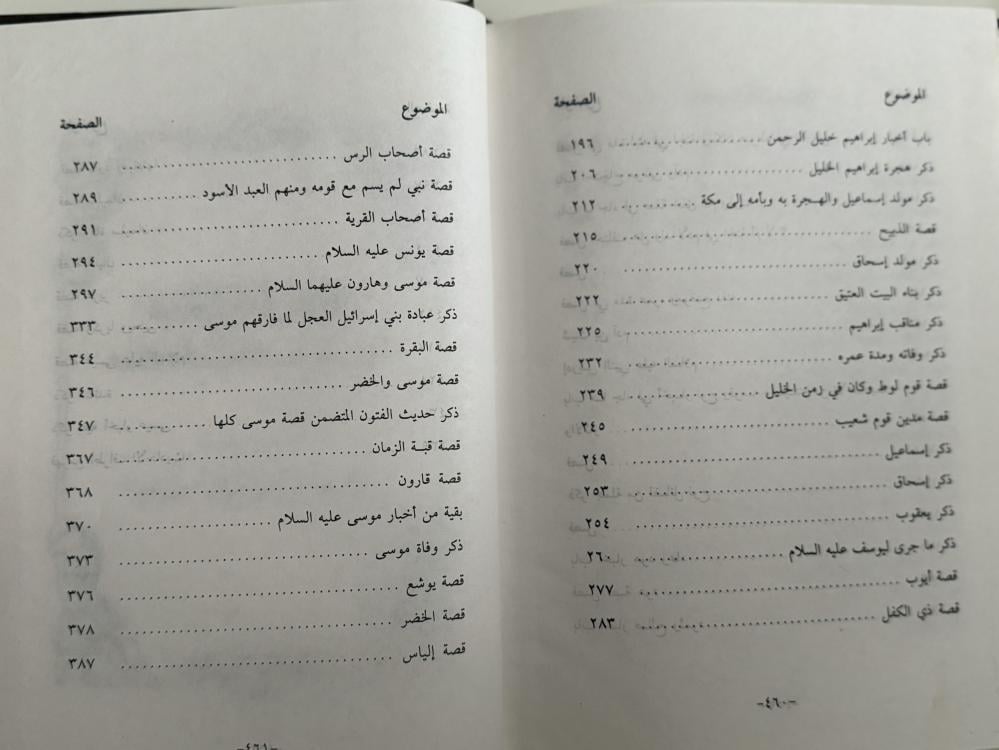 الموضوع الصفحة
باب أخبار إبراهيم خليل الرحمن ١٩٦
ذكر هجرة إبراهيم الخليل ٢٠٦
ذكر مولد إسماعيل والهجرة به وبأمه إلى مكة ٢١٢
قصة الذبيح ٢١٥
ذكر مولد إسحاق ٢٢٠
ذكر بناء البيت العتيق ٢٢٢
ذكر مناقب إبراهيم ٢٢٥
ذكر وفاته ومدة عمره ٢٣٢
قصة قوم لوط وكان في زمن الخليل ٢٣٩
قصة مدين قوم شعيب ٢٤٥
ذكر إسماعيل ٢٤٩
ذكر إسحاق ٢٥٣
ذكر يعقوب ٢٥٤
ذكر ما جرى ليوسف عليه السلام ٢٦٠
قصة أيوب ٢٧٧
قصة ذي الكفل ٢٨٣
-٤٦٠-
الموضوع الصفحة
قصة أصحاب الرس ٢٨٧
قصة نبي لم يسم مع قومه ومنهم العبد الأسود ٢٨٩
قصة أصحاب القرية ٢٩١
قصة يونس عليه السلام ٢٩٤
قصة موسى وهارون عليهما السلام ٢٩٧
ذكر عبادة بني إسرائيل العجل لما فارقهم موسى ٣٣٣
قصة البقرة ٣٤٤
قصة موسى والخضر ٣٤٦
ذكر حديث الفتون المتضمن قصة موسى كلها ٣٤٧
قصة قبة الزمان ٣٦٧
قصة قارون ٣٦٨
بقية من أخبار موسى عليه السلام ٣٧٠
ذكر وفاة موسى ٣٧٣
قصة يوشع ٣٧٦
قصة الخضر ٣٧٨
قصة إلياس ٣٨٧
-٤٦١-